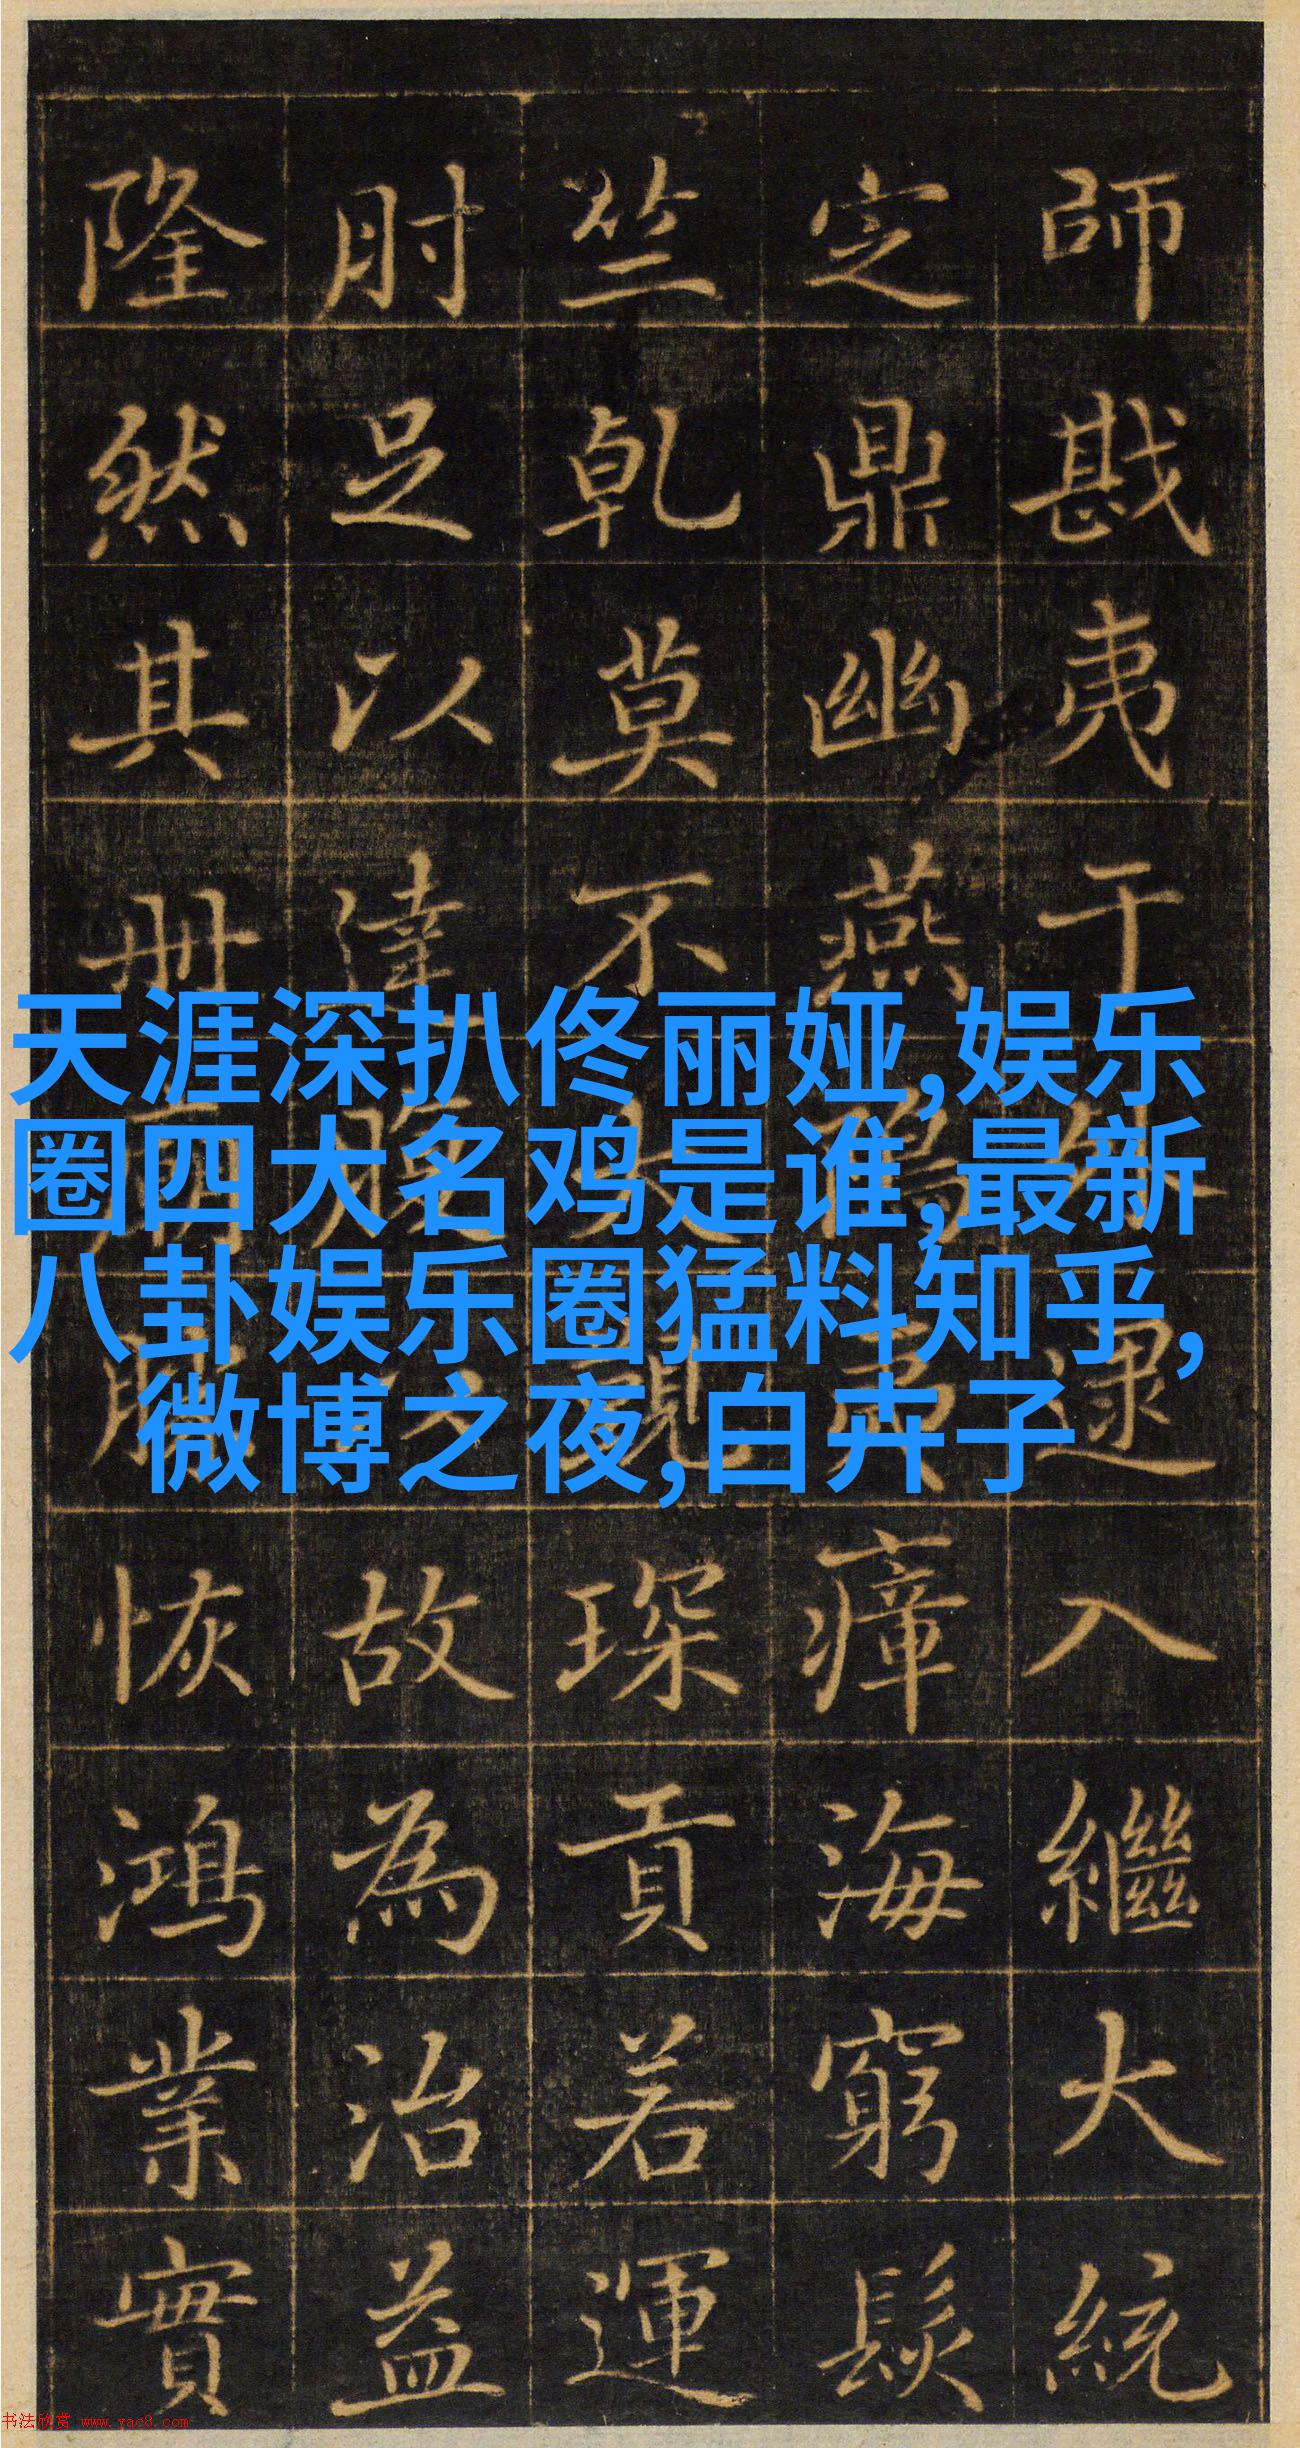 師戡夷于逮入繼大統
定鼎幽燕瘴海窮髮
竺乾莫不琛貢若運
肘足以達故為治益
隆然其冊恢鴻業實
天涯深扒佟丽娅,娱乐
圈四大名鸡是谁,最新
八卦娱乐圈猛料知乎,
微博之夜,白卉子
书法欣赏 www.yac8.com